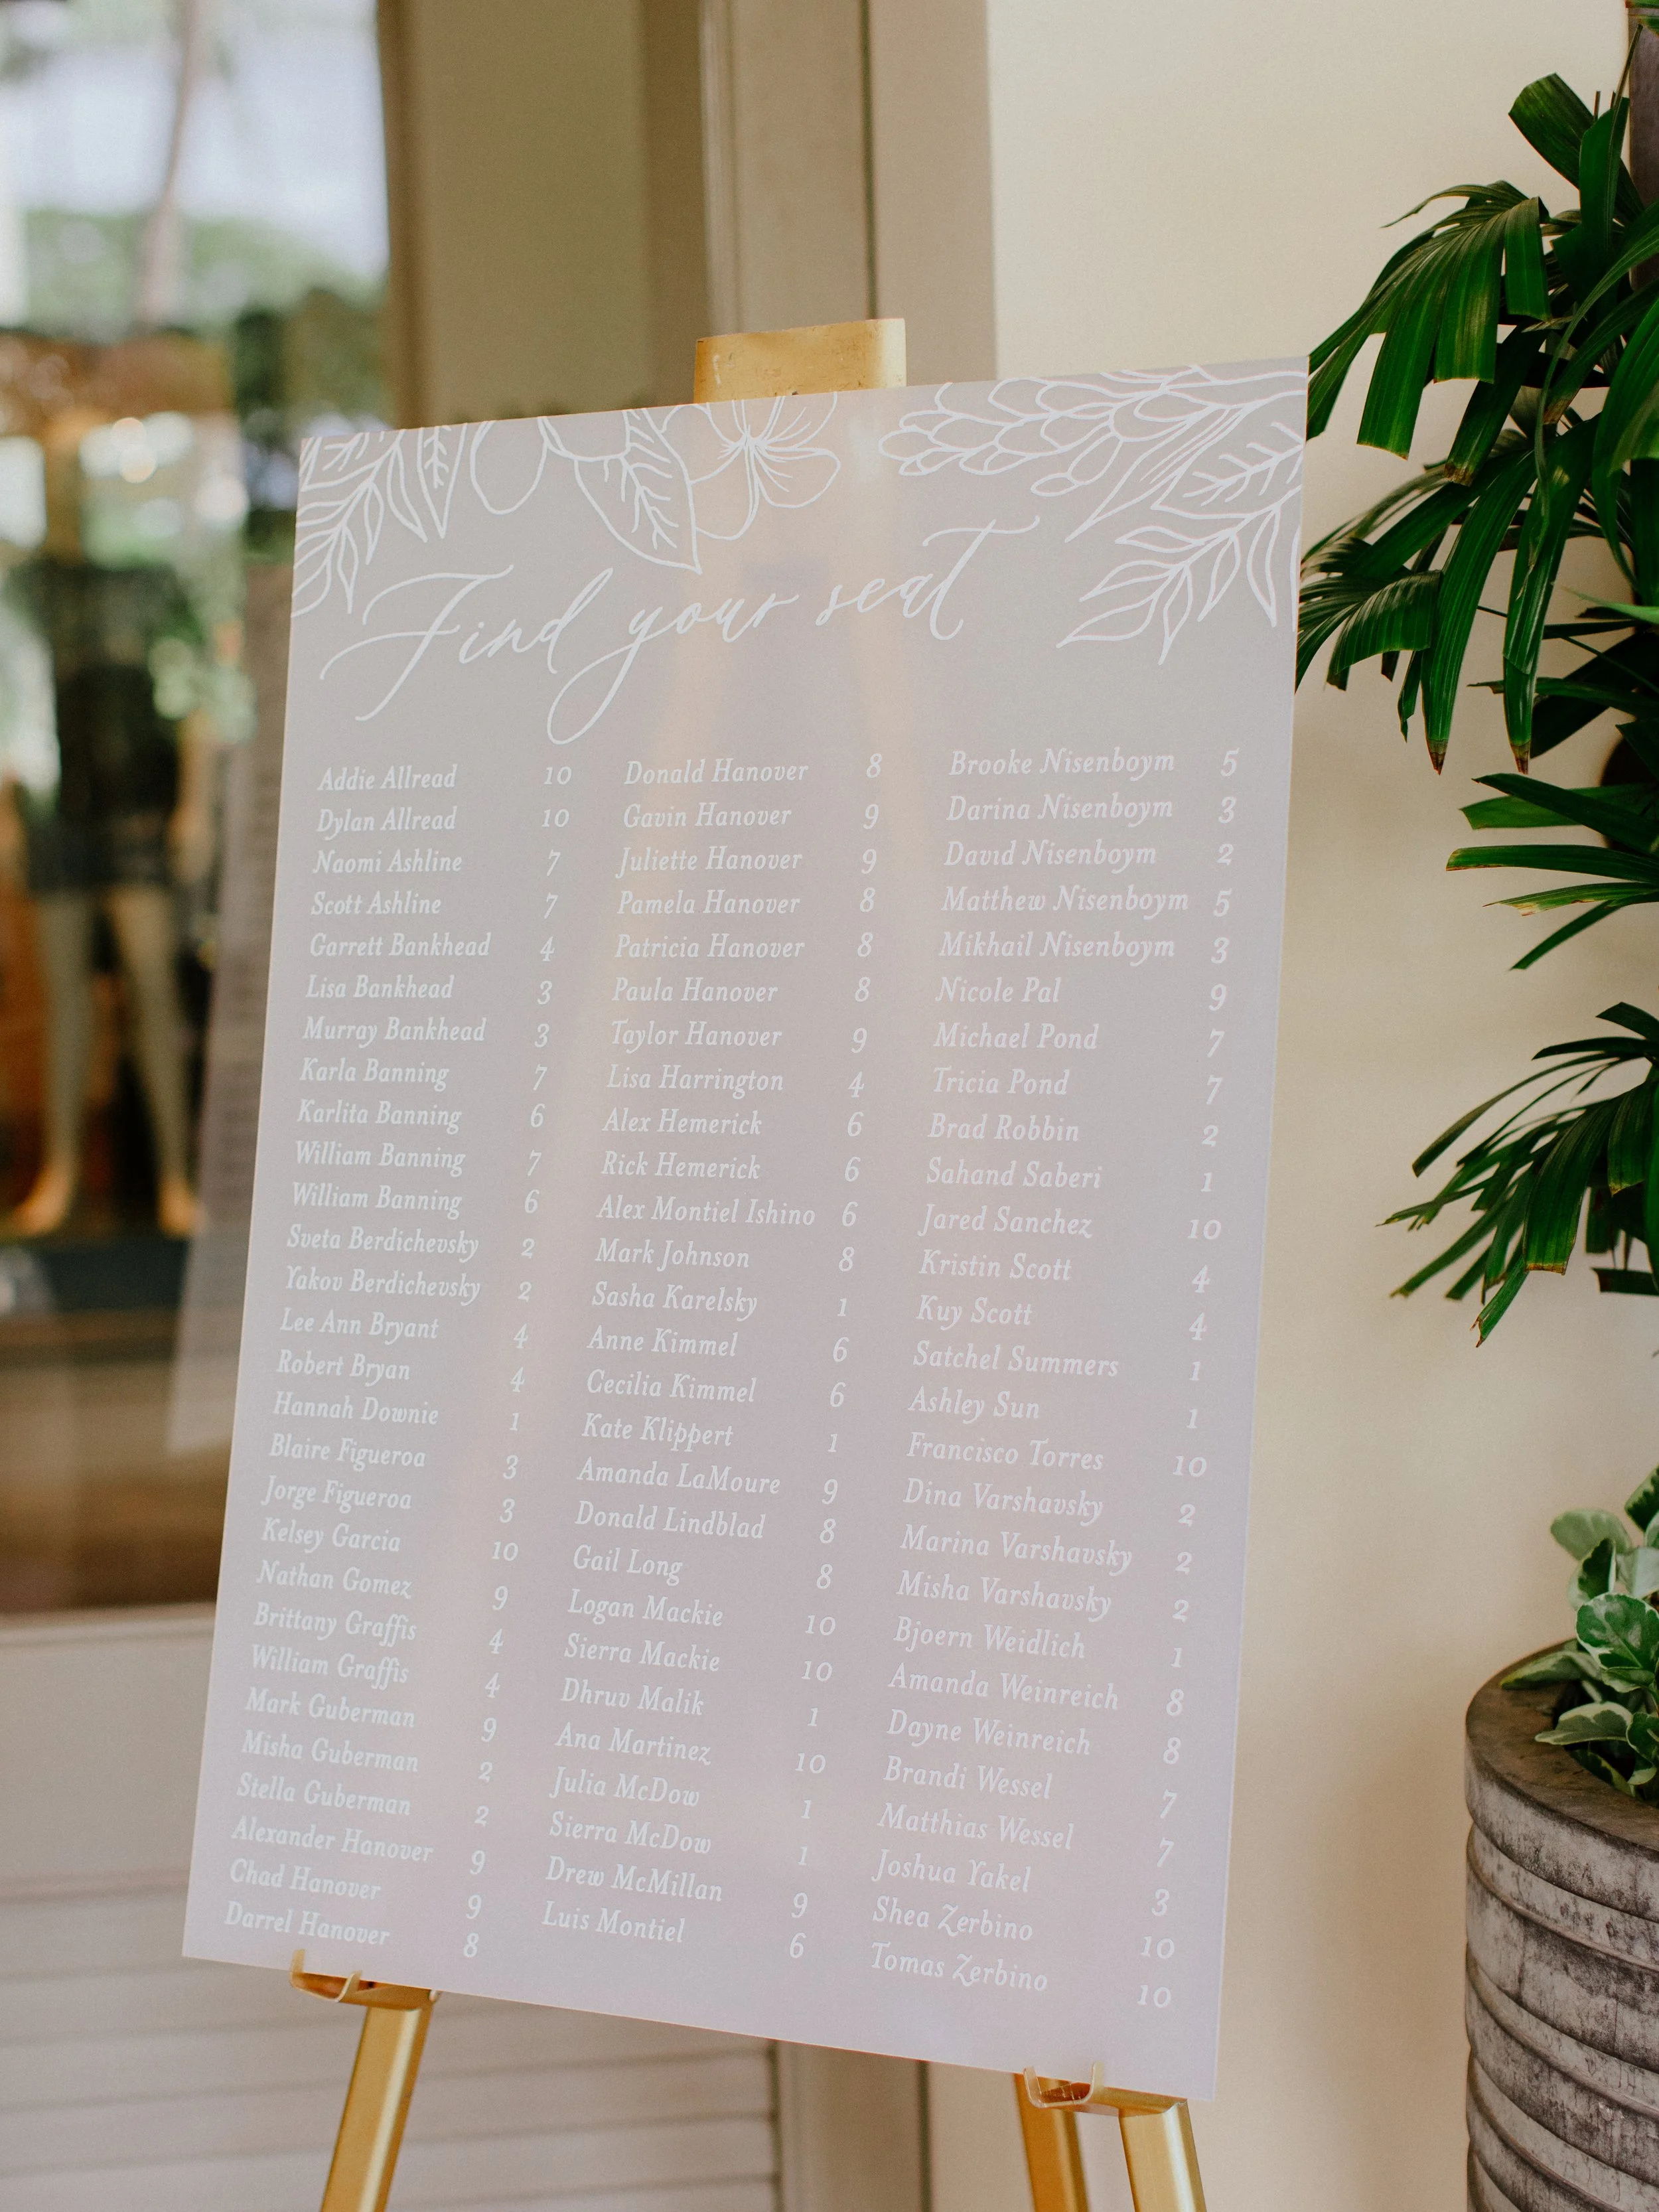 Find your seat
Addie Allread 10
Dylan Allread 10
Naomi Ashline 7
Scott Ashline 7
Garrett Bankhead 4
Lisa Bankhead 3
Murray Bankhead 3
Karla Banning 7
Karlita Banning 6
William Banning 7
William Banning 6
Sveta Berdichevsky 2
Yakov Berdichevsky 2
Lee Ann Bryant 4
Robert Bryan 4
Hannah Downie 1
Blaire Figueroa 3
Jorge Figueroa 3
Kelsey Garcia 10
Nathan Gomez 9
Brittany Graffis 4
William Graffis 4
Mark Guberman 9
Misha Guberman 2
Stella Guberman 2
Alexander Hanover 9
Chad Hanover 9
Darrel Hanover 8
Donald Hanover 8
Gavin Hanover 9
Juliette Hanover 9
Pamela Hanover 8
Patricia Hanover 8
Paula Hanover 8
Taylor Hanover 9
Lisa Harrington 4
Alex Hemerick 6
Rick Hemerick 6
Alex Montiel Ishino 6
Mark Johnson 8
Sasha Karelsky 1
Anne Kimmel 6
Cecilia Kimmel 6
Kate Klippert 1
Amanda LaMoure 9
Donald Lindblad 8
Gail Long 8
Logan Mackie 10
Sierra Mackie 10
Dhruv Malik 1
Ana Martinez 10
Julia McDow 1
Sierra McDow 1
Drew McMillan 9
Luis Montiel 6
Brooke Nisenboym 5
Darina Nisenboym 3
David Nisenboym 2
Matthew Nisenboym 5
Mikhail Nisenboym 3
Nicole Pal 9
Michael Pond 7
Tricia Pond 7
Brad Robbin 2
Sahand Saberi 1
Jared Sanchez 10
Kristin Scott 4
Kuy Scott 4
Satchel Summers 1
Ashley Sun 1
Francisco Torres 10
Dina Varshavsky 2
Marina Varshavsky 2
Misha Varshavsky 2
Bjoern Weidlich 1
Amanda Weinreich 8
Dayne Weinreich 8
Brandi Wessel 7
Matthias Wessel 7
Joshua Yakel 3
Shea Zerbino 10
Tomas Zerbino 10